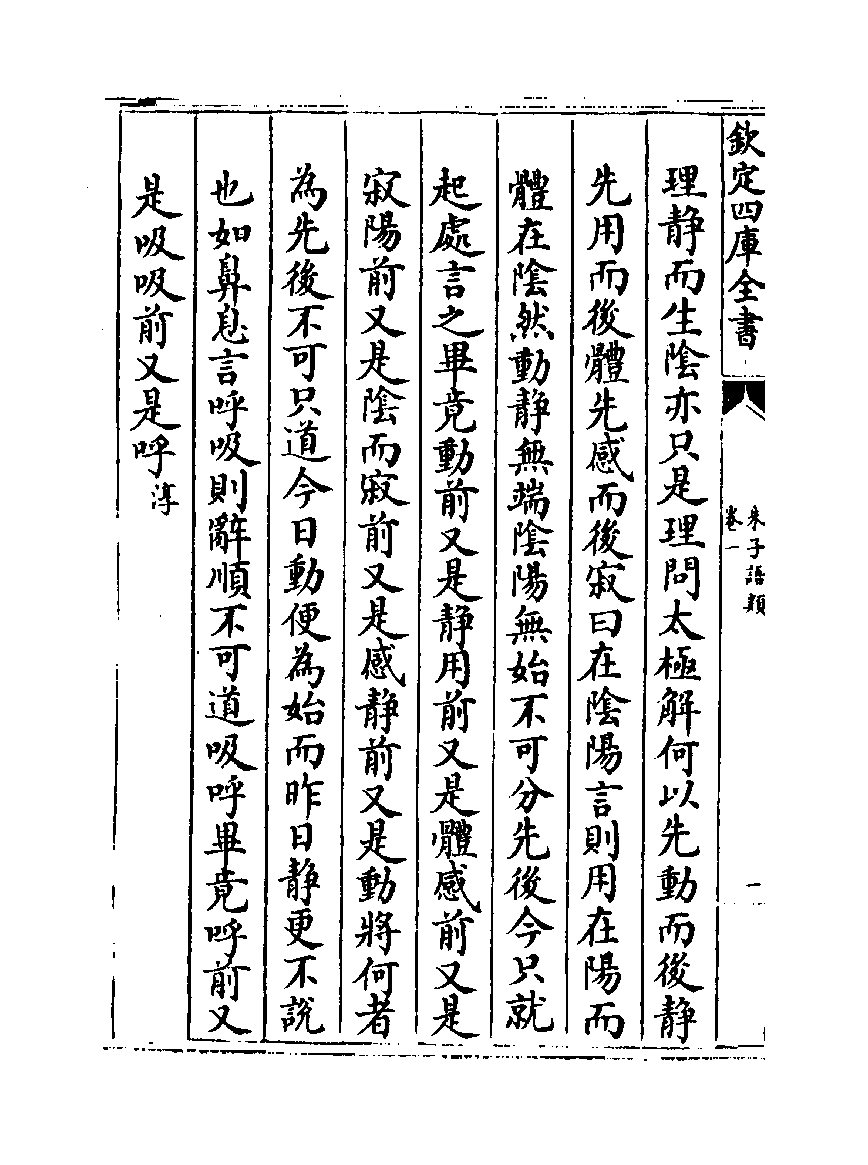 欽定四庫全書
朱子語類
卷一
一
理静而生陰亦只是理問太極解何以先動而後静
先用而後體先感而後寂曰在陰陽言則用在陽而
體在陰然動静無端陰陽無始不可分先後今只就
起處言之畢竟動前又是静用前又是體感前又是
寂陽前又是陰而寂前又是感静前又是動將何者
為先後不可只道今日動便為始而昨日静更不說
也如鼻息言呼吸則辭順不可道吸呼畢竟呼前又
是吸吸前又是呼淳